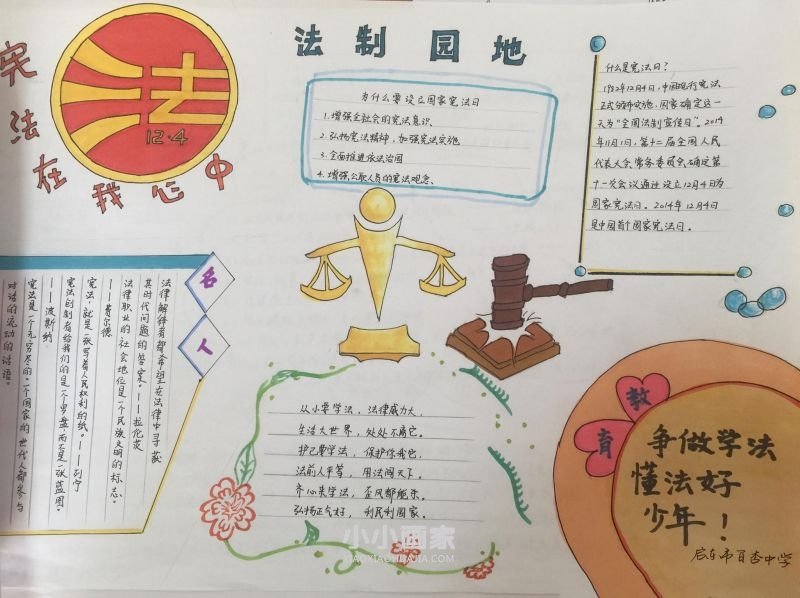 宪法在我心中
法
12·4
法制园地
为什么要设立国家宪法日
1.增强全社会的宪法意识
2.弘扬宪法精神,加强宪法实施
3.全面推进依法治国
4.增强公职人员的宪法观念、
什么是宪法日?
1982年12月4日,中国现行宪法
正式颁布实施,国家确定这一
天为“全国法制宣传日”。2014
年11月1日,第十二届全国人民
代表大会常务委员会确定第
十一次会议通过设立12月4日为
国家宪法日。2014年12月4日
是中国首个国家宪法日。
名人
法律解释者都希望在法律中寻获
其时代问题的答案。——拉伦茨
法律职业的社会地位是一个民族文明的标志。
——费尔德
宪法,就是一张写着人民权利的纸。——列宁
宪法创制者给我们的是一个罗盘而不是一张蓝图。
——波斯纳
宪法是一个无穷尽的、一个国家的世代人都参与
对话的流动的话语。
从小要学法,法律威力大,
生活大世界,处处不离它。
护己要学法,保护你我他,
法前人平等,用法闯天下。
齐心来学法,歪风都能杀。
弘扬正气好,利民利国家。
小小画家
XIAOXIAOHUAJIA.COM
教育
争做学法
懂法好
少年!
启东市百杏中学